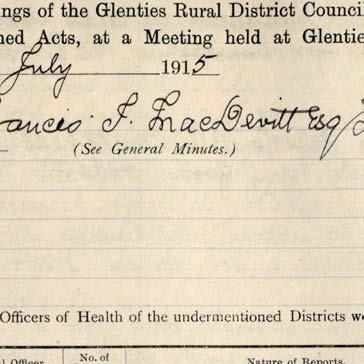 ings of the Glenties Rural District Council
ned Acts, at a Meeting held at Glentie
July 1915
rancis J. MacDevitt Esq
(See General Minutes.)
Officers of Health of the undermentioned Districts we
l Officer No. of Nature of Reports.